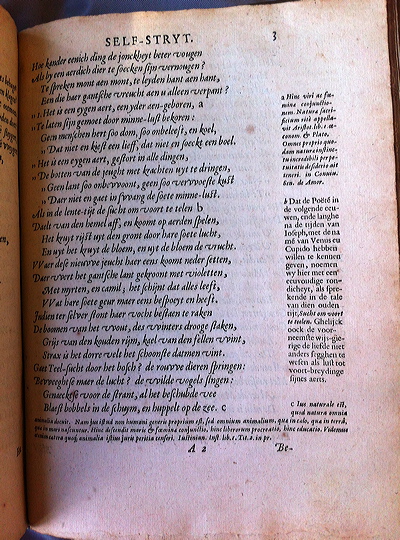 SELF-STRYT. 3
Hoe kander eenich ding de jonckheyt beter vougen
Als by een aerdich dier te soecken sijn vernougen?
Te spreken mont aen mont, te leyden hant aen hant,
Een die haer gantsche vreucht aen u alleen verpant?
„ 't Is een eygen aert, een yder aen-geboren, a
„ Te laten sijn gemoet door minne-lust bekoren:
Geen menschen hert soo dom, soo onbeleeft, en koel,
„ Dat niet en kiest een lieff, dat niet en soeckt een boel.
„ Het is een eygen aert, gestort in alle dingen,
„ De botten van de jeught met krachten uyt te dringen,
„ Geen lant soo onbewoont, geen soo verwoeste kust
„ Daer niet en gaet in swang de soete minne-lust.
Als in de lente-tijt de sucht om voort te telen b
Daelt van den hemel aff, en koomt op aerden spelen,
Het kruyt rijst uyt den gront door hare soete lucht,
En uyt het kruyt de bloem, en uyt de bloem de vrucht.
VVaer dese nieuwe jeucht haer eens komt neder setten,
Daer wert het gantsche lant gekroont met violetten,
Met myrten, en camil, het schijnt dat alles leeft,
VVat hare soete geur maer eens bespoeyt en heeft.
Indien ter silver stont haer vocht bestaen te raken
De boomen van het wout, des winters drooge staken,
Grijs van den kouden rijm, kael van den fellen wint,
Strax is het dorre velt het schoonste datmen vint.
Gaet Teel-sucht door het bosch? de rouwe dieren springen:
Beweeghtse maer de lucht? de wilde vogels singen:
Genaecktse voor de strant, al het beschubde vee
Blaest bobbels in de schuym, en huppelt op de zee. c
a Hinc viri ac fœ-
mina conjunctio-
nem. Natura sacri-
ficium rite appella-
vit Aristot. lib. 1. œ-
conom. & Plato.
Omnes propria qua-
dam natura instinc-
tu incredibili perpe-
tuitatis desiderio ait
teneri. in Conviu.
Seu. de Amor.
b Dat de Poëtë in
de volgende eeu-
wen, ende langhe
na de tijden van
Ioseph, met de na
më van Venus eu
Cupido hebben
willen te kennen
geven, noemen
wy hier met een
eenvoudige ron-
dicheyt, als spre-
kende in de tale
van dien ouden
tijt, Sucht om voort
te telen. Ghelijck
oock de voor-
neemste wijs-gie-
rige de liefde niet
anders segghen te
wesen als lust tot
voort-breydinge
sijnes aerts.
c Ius naturale est,
quod natura omnia
animalia docuit. Nam jus istud non humani generis proprium est, sed omnium animalium, quæ in cælo, quæ in terrâ,
quæ in mari nascuntur. Hinc descendit maris & fœmina conjunctio, hinc liberorum procreatio, hinc educatio. Videmus
etenim cetera quoq; animalia istius juris peritia censeri. Iustinian. Inst. lib. 1. Tit. 2. in pr.
A 2 Be-